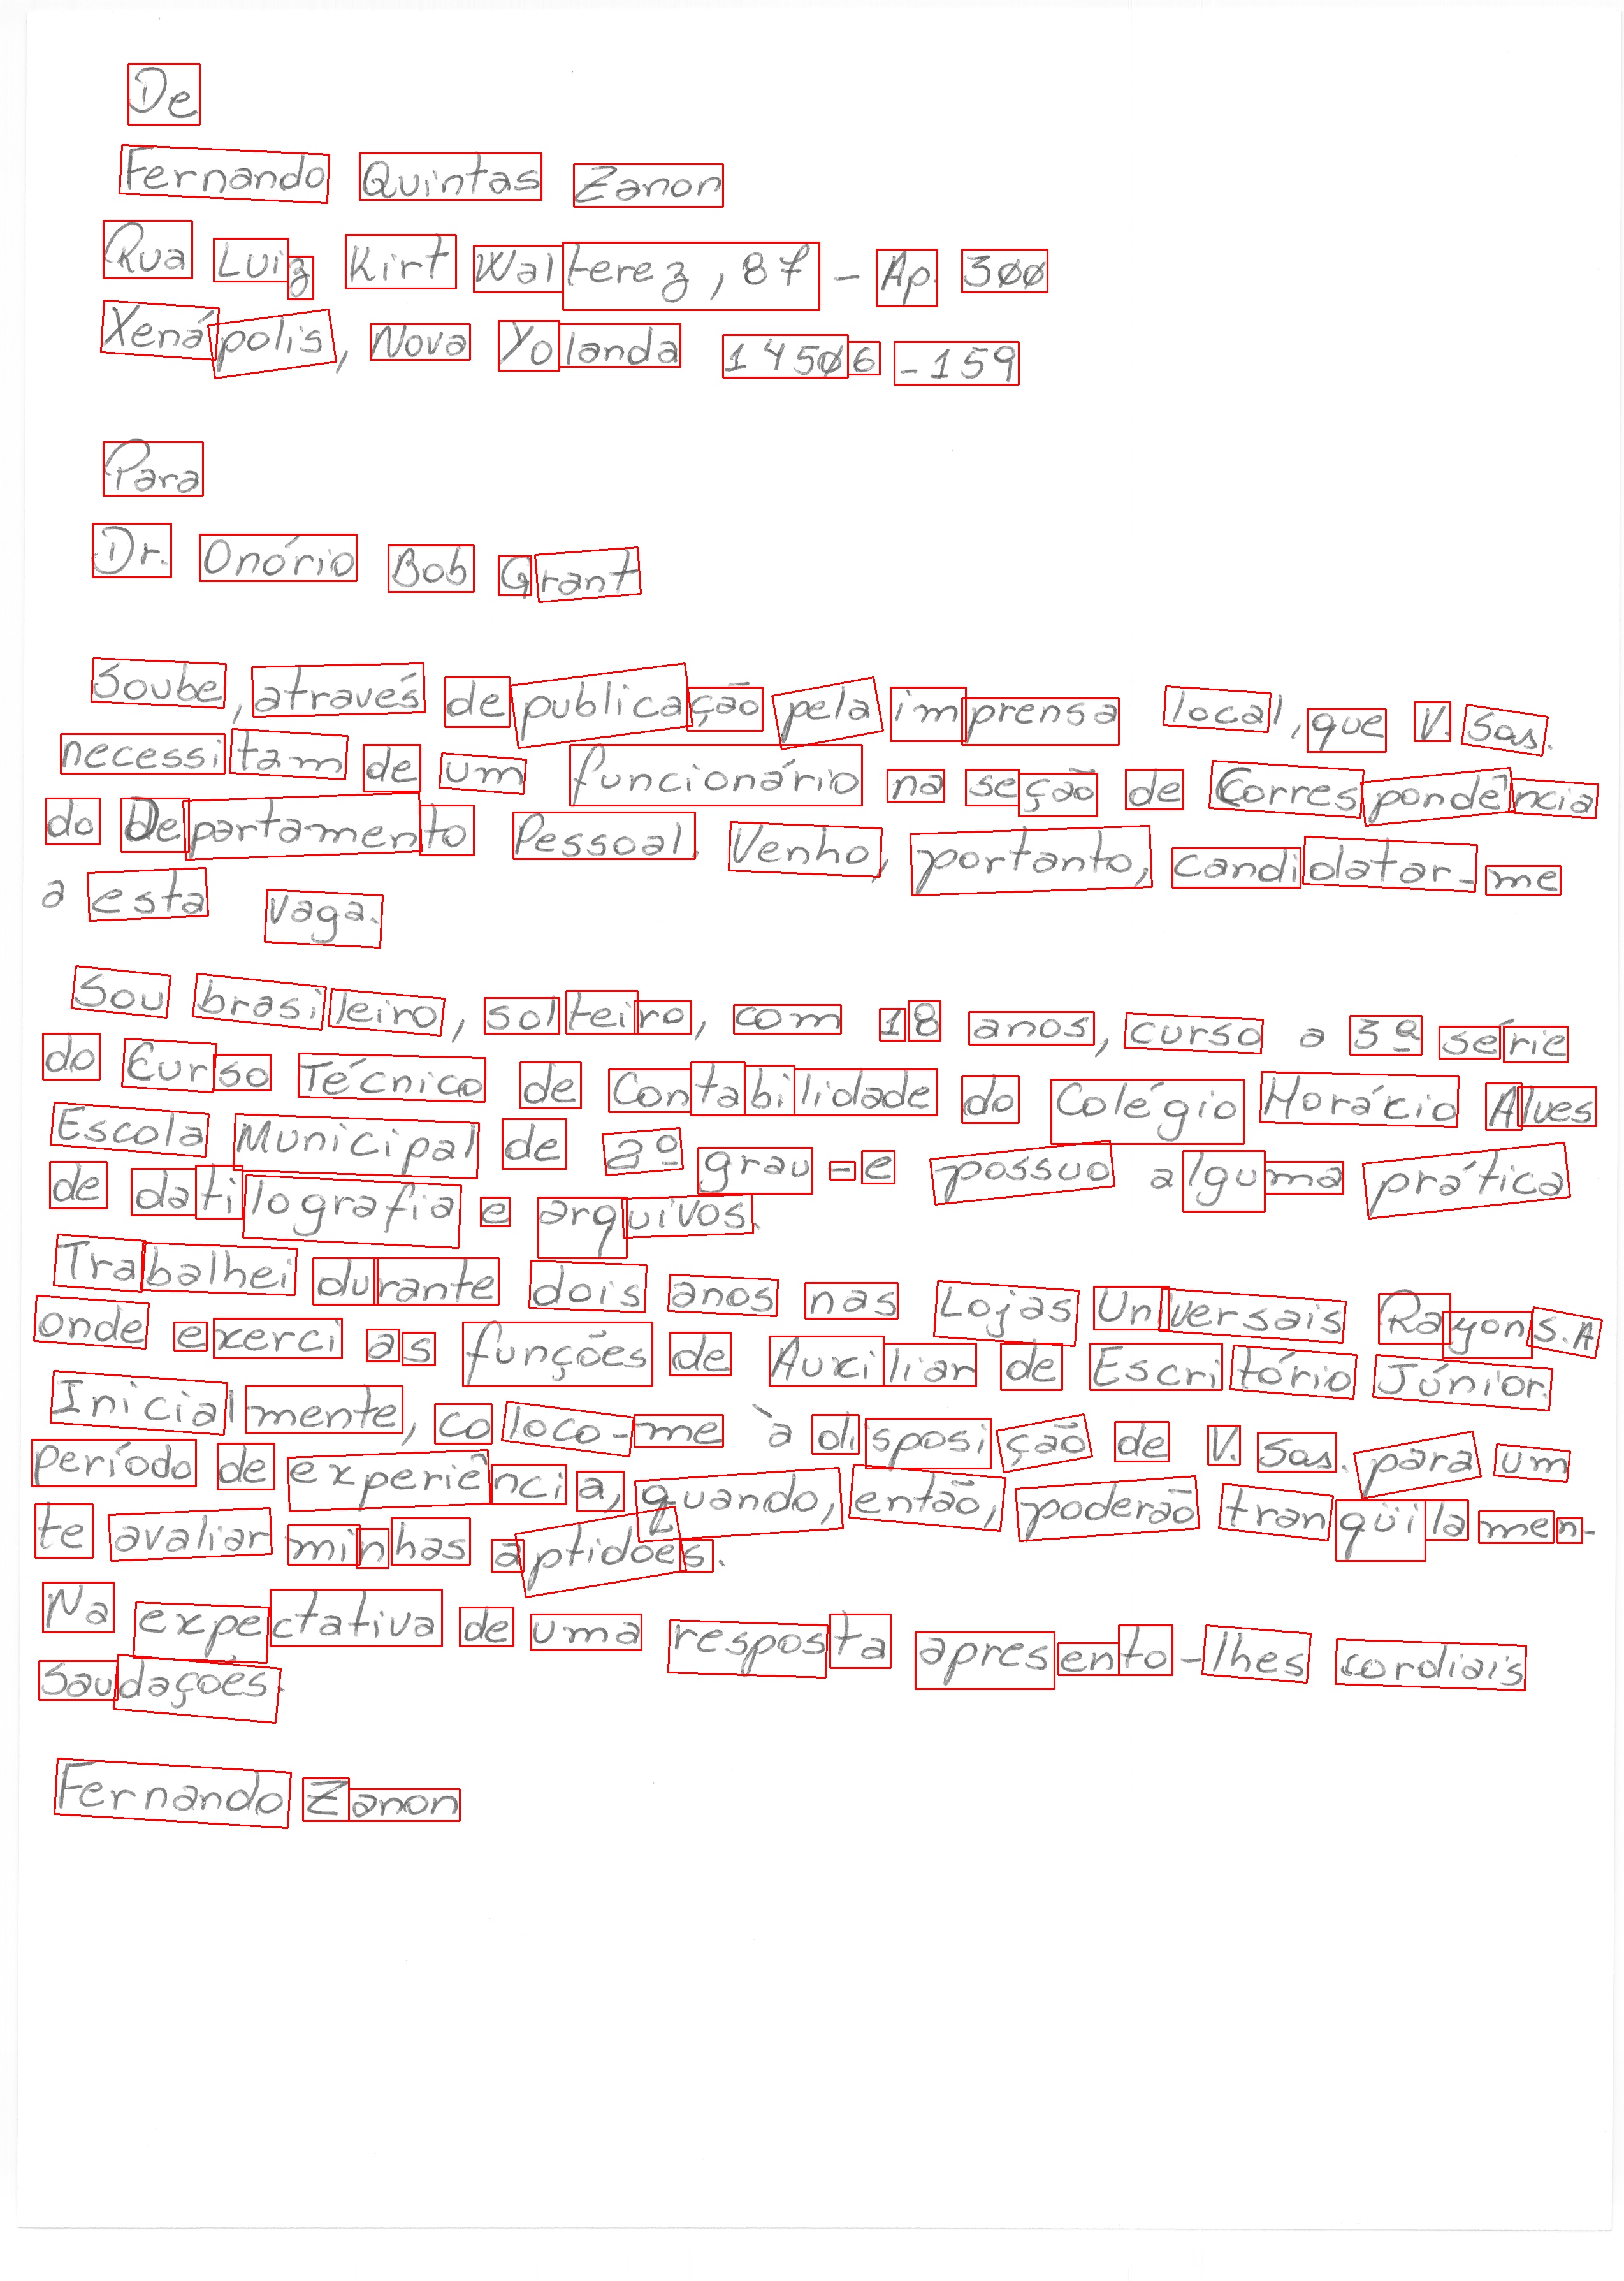 De
Fernando Quintas Zanon
Rua Luiz Kirt Walterez, 87 - Ap. 300
Xenápolis, Nova Yolanda 14506-159
Para
Dr. Onório Bob Grant
Soube, através de publicação pela imprensa local, que V. Sas.
necessitam de um funcionário na seção de Correspondência
do Departamento Pessoal. Venho, portanto, candidatar-me
a esta vaga.
Sou brasileiro, solteiro, com 18 anos, curso a 3ª série
do Curso Técnico de Contabilidade do Colégio Horácio Alves
Escola Municipal de 2º grau - e possuo alguma prática
de datilografia e arquivos.
Trabalhei durante dois anos nas Lojas Universais Rayon S.A
onde exerci as funções de Auxiliar de Escritório Júnior.
Inicialmente, coloco-me à disposição de V. Sas. para um
período de experiência, quando, então, poderão tranqüilamen-
te avaliar minhas aptidões.
Na expectativa de uma resposta apresento-lhes cordiais
saudações.
Fernando Zanon